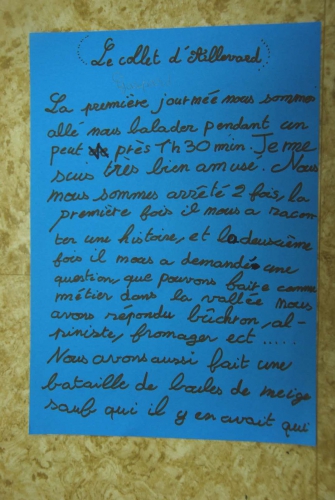 Le collet d'Allevard
La première journée nous sommes
allé nous balader pendant un
peut près 1h30 min. Je me
suis très bien amusé. Nous
nous sommes arrêté 2 fois, la
première fois il nous a racon-
ter une histoire, et la deuxième
fois il nous a demandé une
question, que pouvons faire comme
métier dans la vallée nous
avons répondu bûchron, al-
piniste, fromager ect .....
Nous avons aussi fait une
bataille de boules de neige
saub qui il y en avait qui